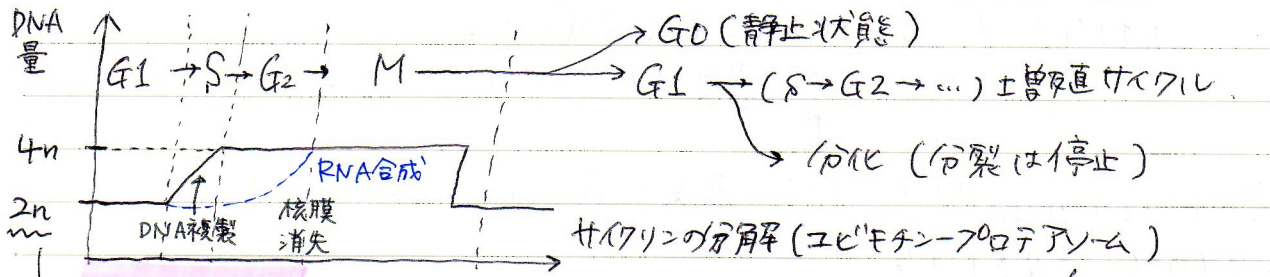 DNA
量
G1 → S → G2 → M
→ G0 (静止状態)
→ G1 → (S→G2→…) 増殖サイクル
→ 分化 (分裂は停止)
4n
RNA合成
2n
DNA複製
核膜
消失
サイクリンの分解 (ユビキチン-プロテアソーム)